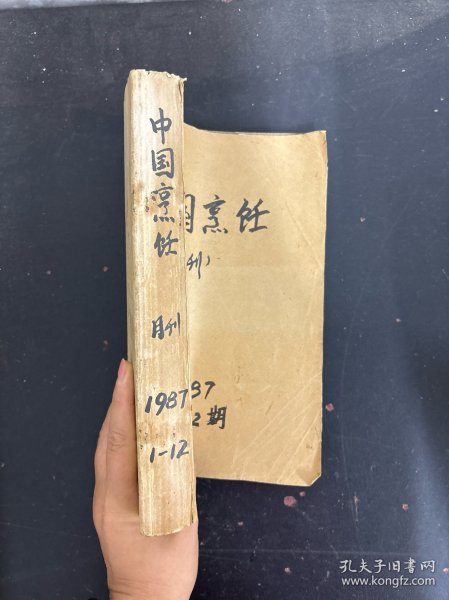 中国烹饪
月刊
1987
1-12
国烹饪
刊)
87
2期
孔夫子旧书网
www.kongfz.com